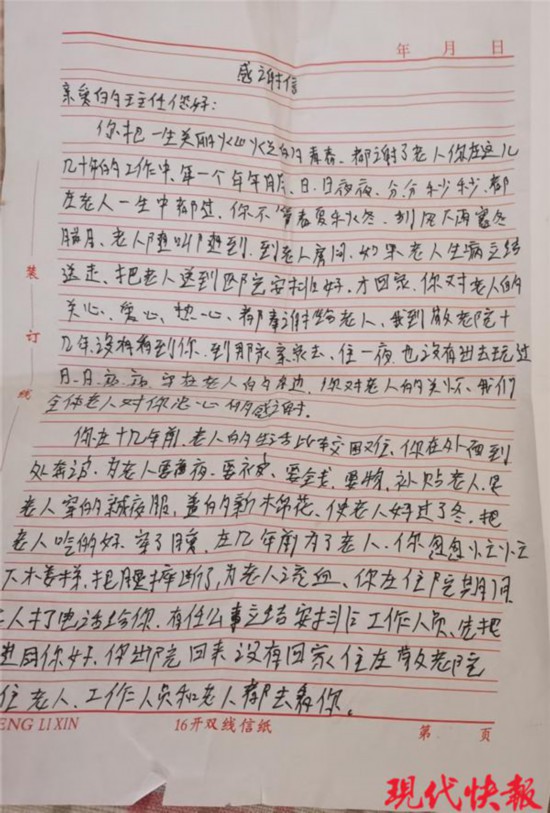 年 月 日
感谢信
亲爱的王主任您好:
你把一生美丽的火火的青春,都谢了老人你在这几
几十年的工作中,每一个年年月月、日、日夜夜、分、分秒秒、都
在老人一生中都过,你不管春夏秋冬、刮风下雨寒冬
腊月、老人随叫随到,到老人房间,如果老人生病立结
送走、把老人送到医院安排好,才回家,你对老人的
关心、爱心、热心、都奉谢给老人、我到敬老院十
几年没有看到你,到那家亲戚去、住一夜,也没有出去玩过
日、日夜、夜、守在老人的身边,你对老人的关怀、我们
全体老人对你忠心的感谢.
你在十几年前,老人的生活比较困难,你在外面到
处奔,为老人要夜、要衣、要金钱,要物、补贴老人,
老人穿的新夜服,盖的新木棉花、使老人好过了冬,把
老人吃的好、穿了暖,在几年前为了老人、你忽忽忙忙
下木娄梯、把腿摔断了,为老人流血、你在住院期间
人打电话给你,有任么事立结安排工作人员、先把
你好,你出院回来没有回家住在敬老院
住老人、工作人员和老人都去看你。
装订线
ENG LI XIN 16开双线信纸 第 页
現代快報